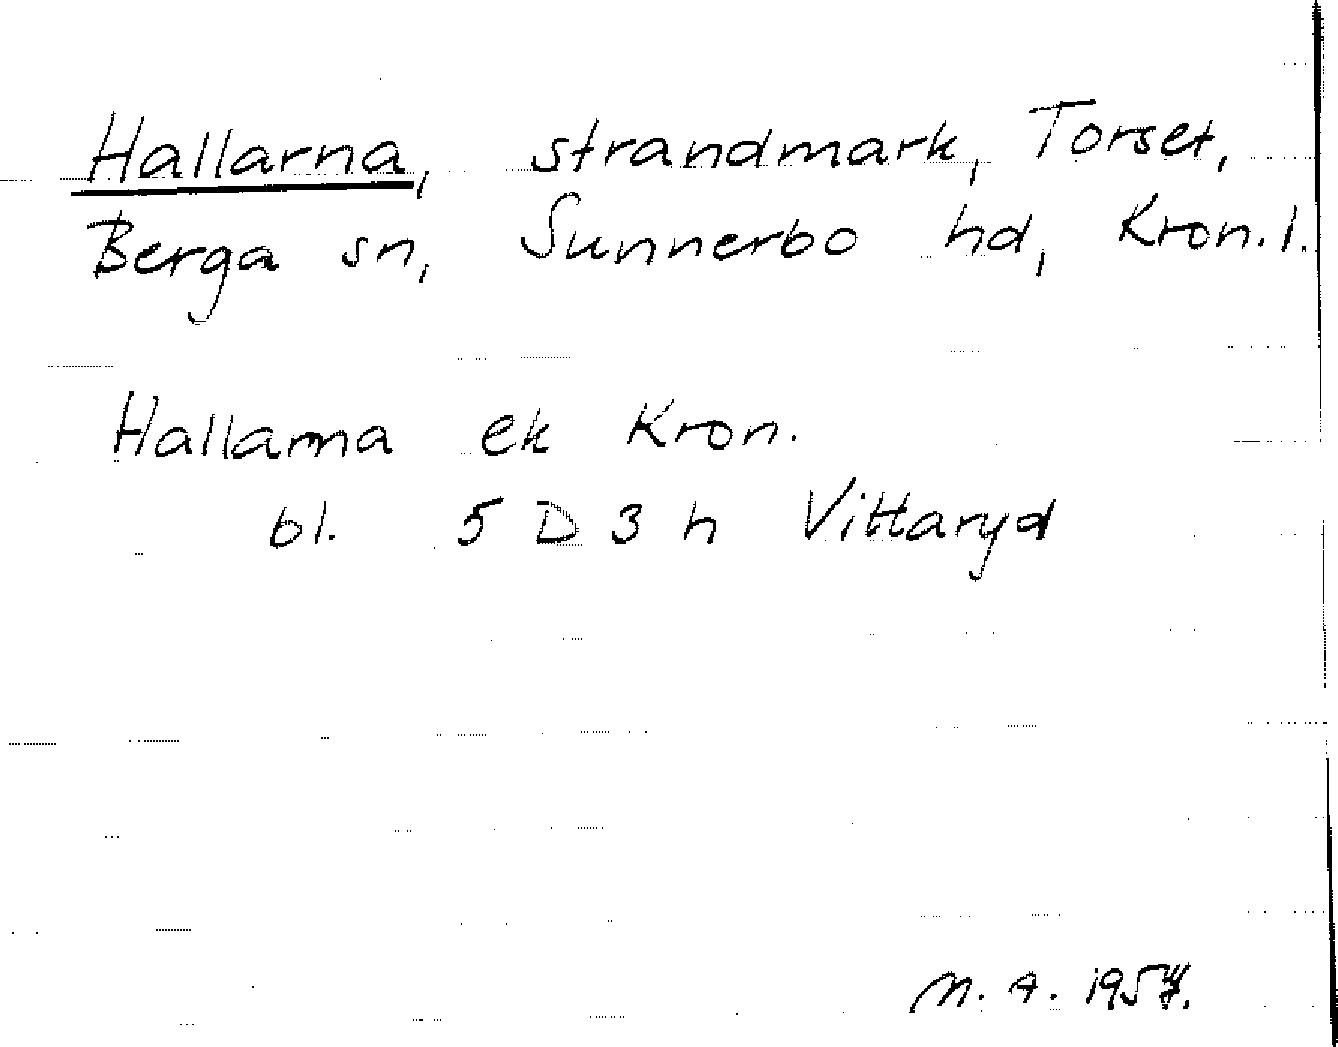 Hallarna, strandmark, Torset,
Berga sn, Sunnerbo hd, Kron. l.
Hallarna ek Kron.
bl. 5 D 3 h Vittaryd